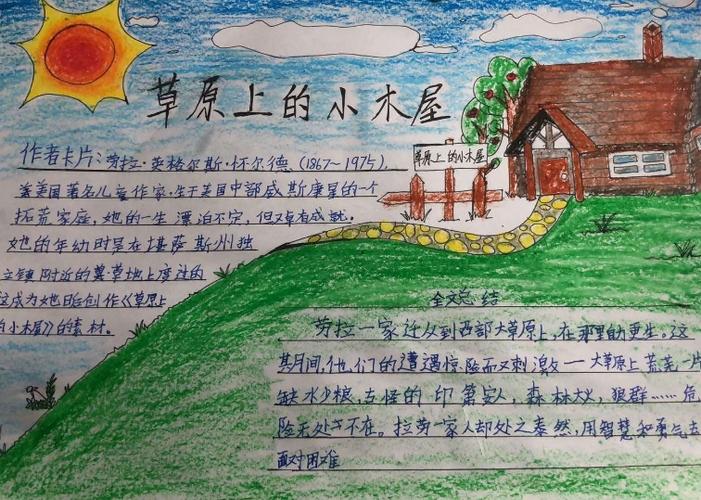 草原上的小木屋
草原上的小木屋
作者卡片:劳拉·英格尔斯·怀尔德(1867~1975).
美国著名儿童作家.生于美国中部威斯康星的一个
拓荒家庭,她的一生漂泊不定,但却有成就.
她的年幼时是在堪萨斯州独
立镇附近的草地上度过的
这成为她日后创作《草原上
的小木屋》的素材.
全文总结
劳拉一家迁从到西部大草原上,在那里自力更生.这
其月间,他们的遭遇惊险而又刺激——大草原上荒芜一片
缺水少粮,古怪的印第安人,森林大火,狼群……危
险无处不在.拉劳一家人却处之泰然,用智慧和勇气去
面对困难